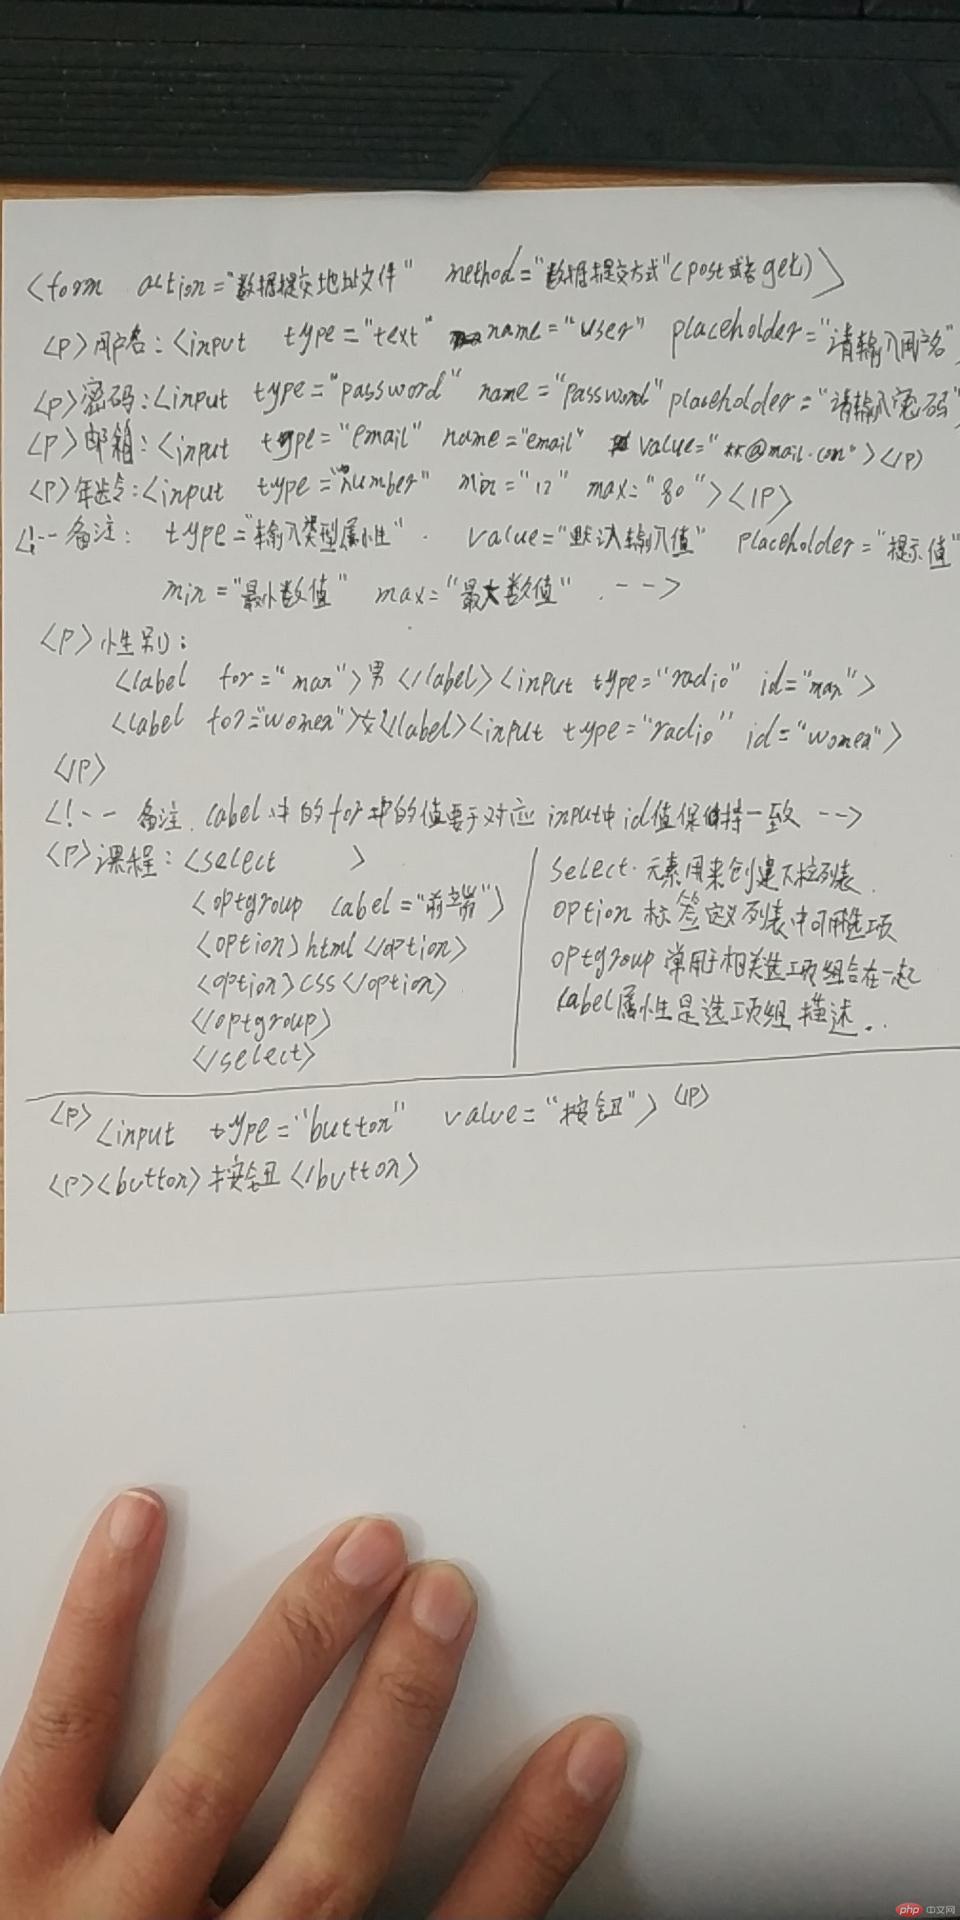 <form action="数据提交地址文件" method="数据提交方式"(post或者get)>
<p>用户名:<input type="text" name="user" placeholder="请输入用户名"
<p>密码:<input type="password" name="password" placeholder="请输入密码"
<p>邮箱:<input type="email" name="email" value="**@mail.con"></p>
<p>年龄:<input type="number" min="12" max="80"></p>
<!-- 备注: type="输入类型属性". value="默认输入值" placeholder="提示值"
min="最小数值" max="最大数值" . -->
<p>性别:
<label for="man">男</label><input type="radio" id="man">
<label for="women">女</label><input type="radio" id="women">
</p>
<!-- 备注. label中的for中的值要于对应input中id值保持一致 -->
<p>课程:<select >
<optgroup label="前端">
<option>html</option>
<option>css</option>
</optgroup>
</select>
select.元素用来创建下拉列表.
option 标签定义列表中可用选项
optgroup 常用于相关选项组合在一起
label属性是选项组描述..
<p><input type="button" value="按钮"></p>
<p><button>按钮</button>
php 中文网